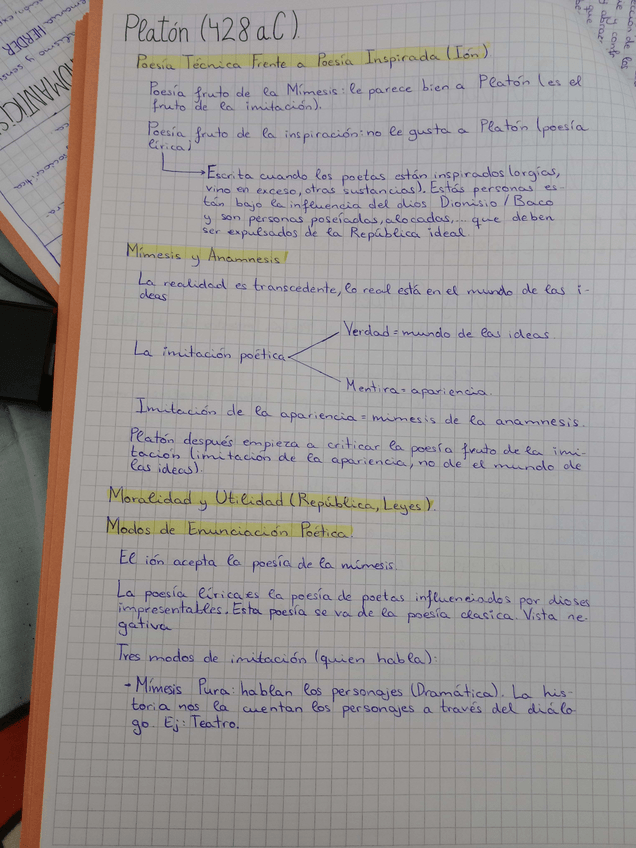 Platón (428 aC).
Poesía Técnica Frente a Poesía Inspirada (Ión)
Poesía fruto de la Mímesis: le parece bien a Platón (es el
fruto de la imitación).
Poesía fruto de la inspiración: no le gusta a Platón (poesía
lírica)
Escrita cuando los poetas están inspirados (orgías,
vino en exceso, otras sustancias). Estás personas es-
tán bajo la influencia del dios Dionisio / Baco
y son personas poseíadas, alocadas,... que deben
ser expulsados de la República ideal.
Mímesis y Anamnesis
La realidad es transcedente, lo real está en el mundo de las i-
deas
La imitación poética
Verdad = mundo de las ideas.
Mentira = apariencia.
Imitación de la apariencia = mimesis de la anamnesis.
Platón después empieza a criticar la poesía fruto de la imi-
tación (imitación de la apariencia, no de el mundo de
las ideas).
Moralidad y Utilidad (República, Leyes).
Modos de Enunciación Poética.
El ión acepta la poesía de la mímesis.
La poesía lírica es la poesía de poetas influenciados por dioses
impresentables. Esta poesía se va de la poesía clasica. Vista ne-
gativa
Tres modos de imitación (quien habla):
- Mímesis Pura: hablan los personajes (Dramática). La his-
toria nos la cuentan los personajes a través del diálo
go. Ej: Teatro.
HERDER